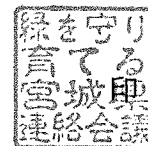 緑を守り
育てる
宮城県
連絡会議
印